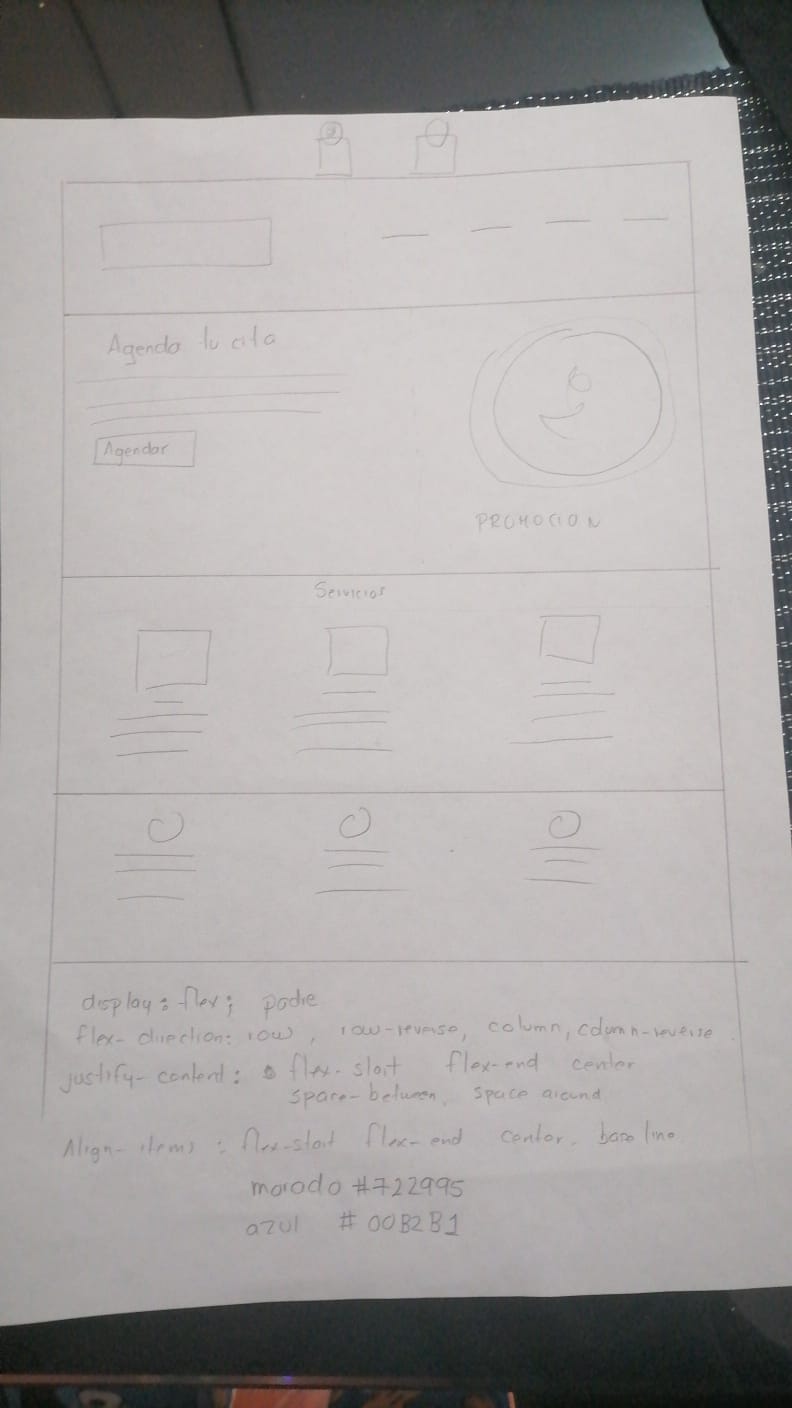 Agenda tu cita
Agendar
PROMOCION
Servicios
display: flex; padre
flex-direction: row, row-reverse, column, column-reverse
justify-content: flex-start flex-end center
space-between, space around
Align-items: flex-start flex-end center, baseline
morado #722995
azul #00B2B1